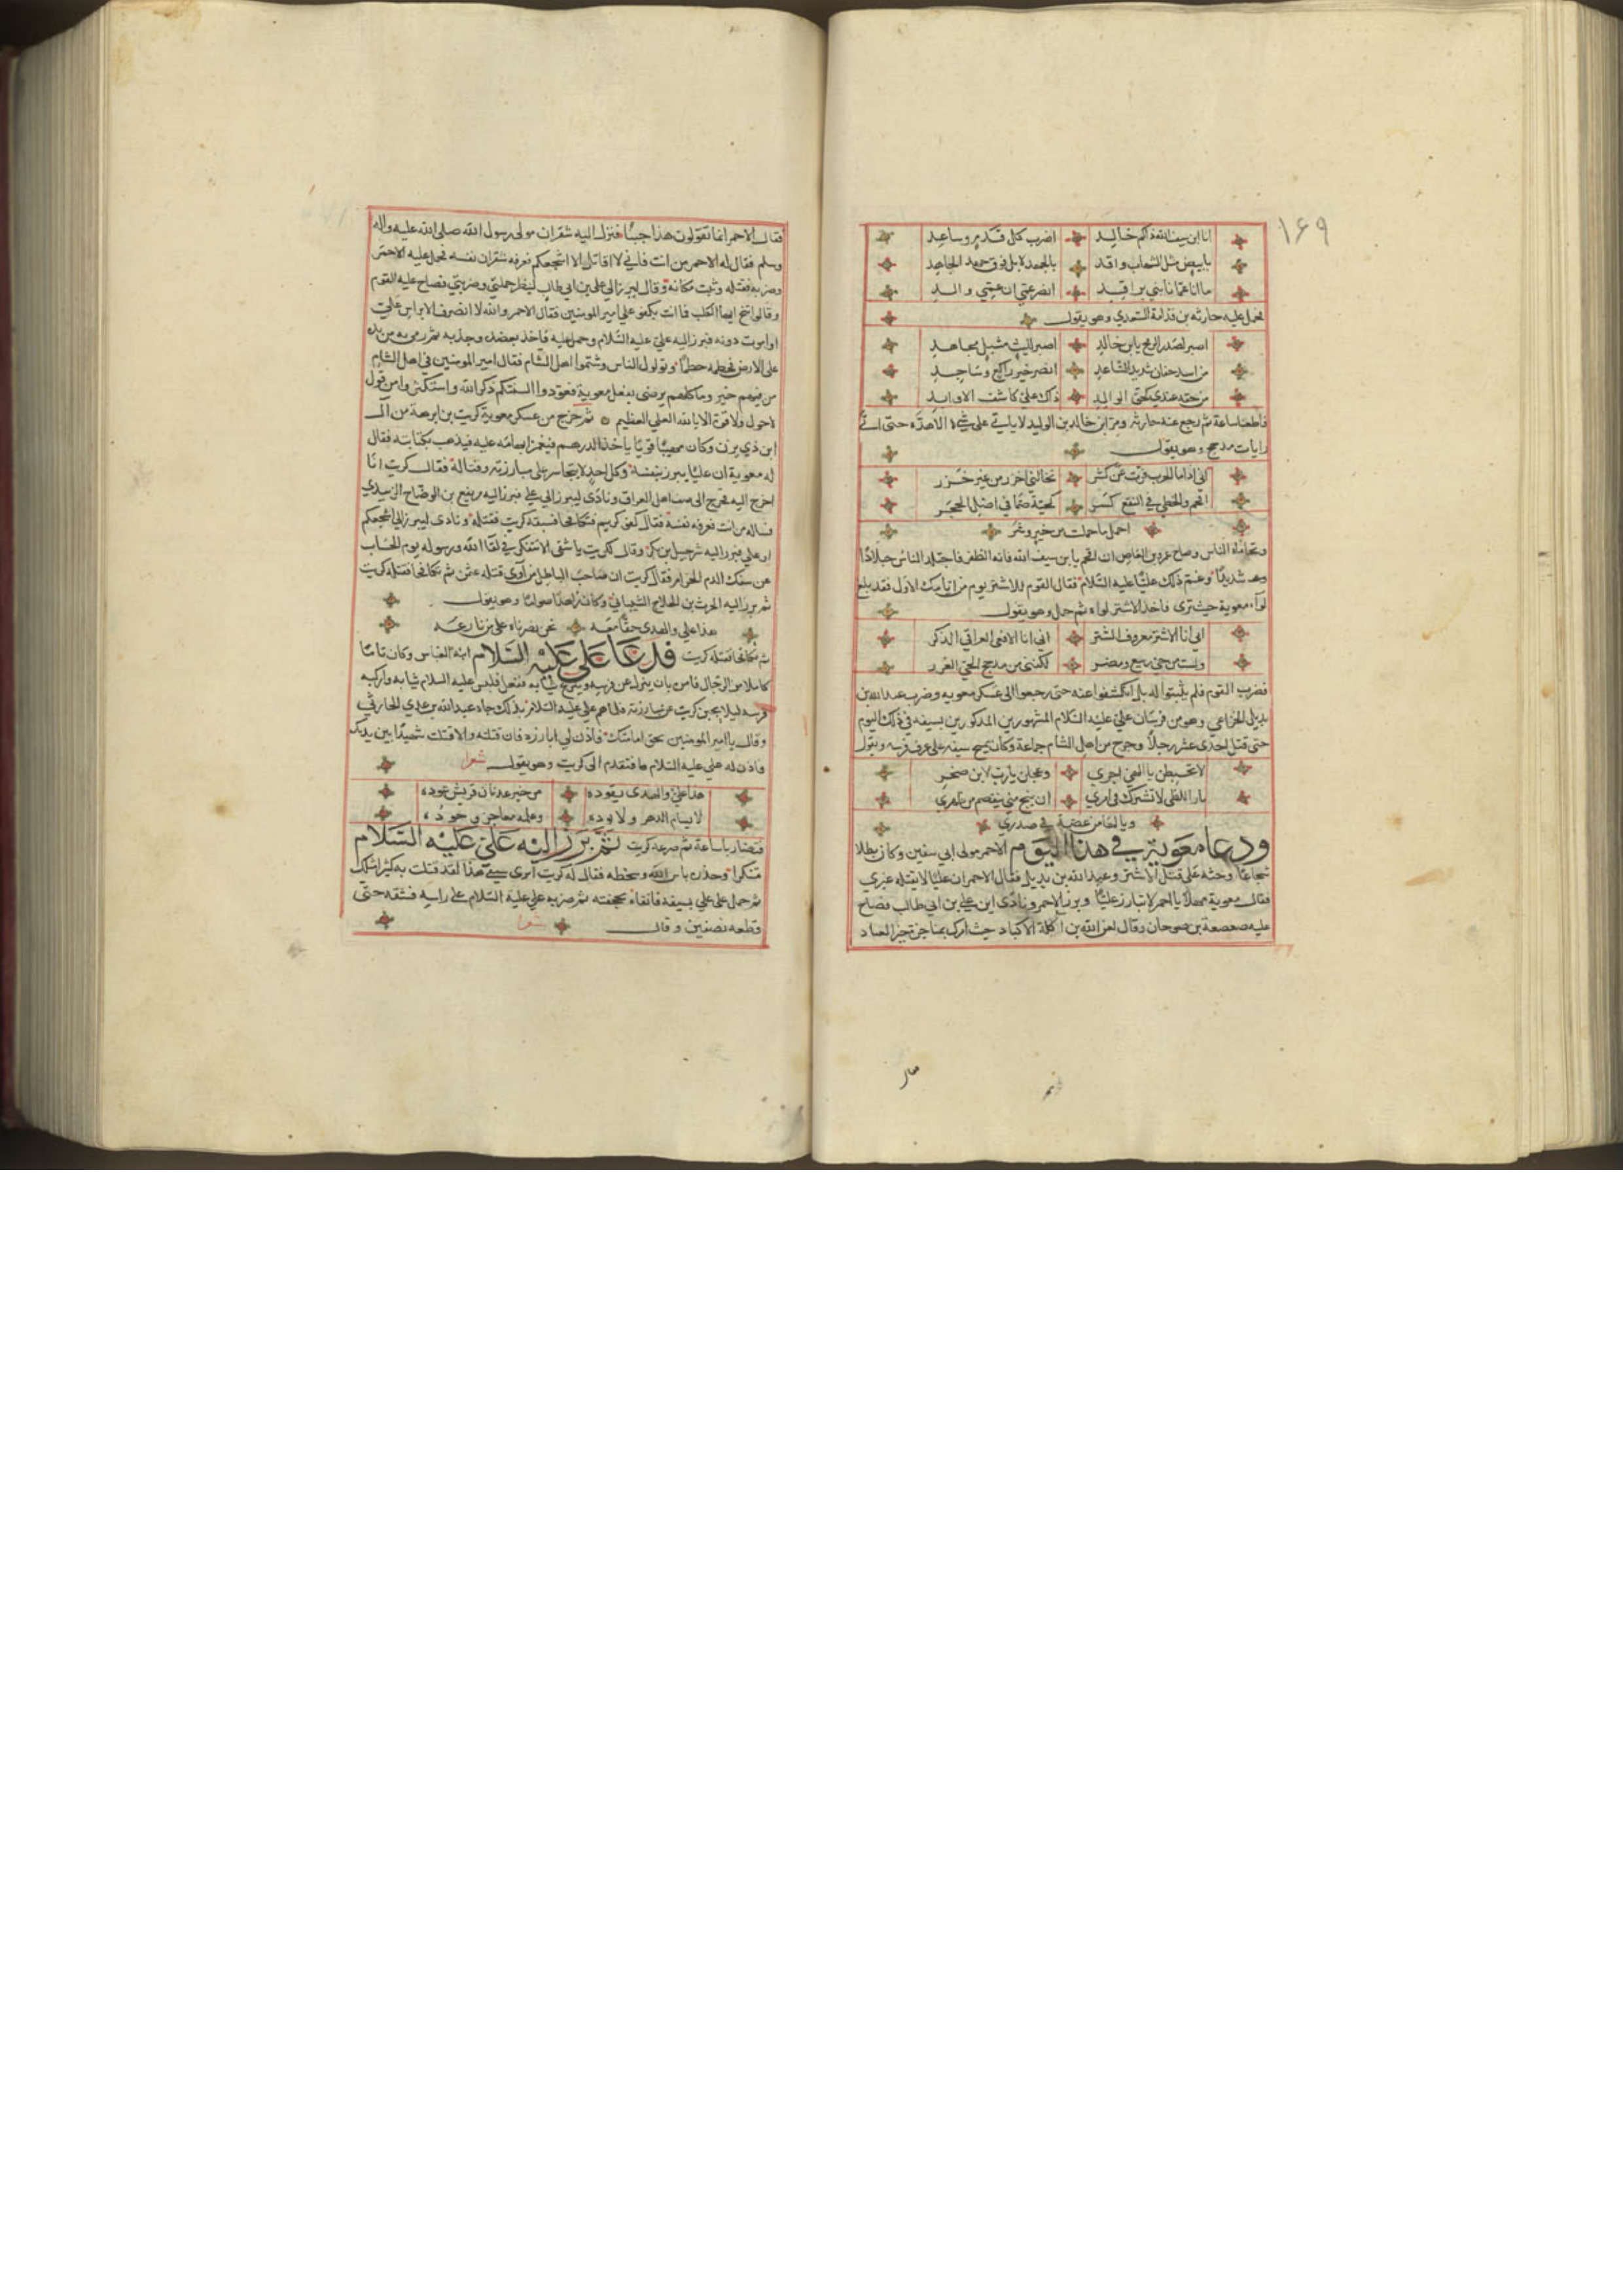 ١٦٩
انا ابن سيف الله ذاكم خالد اضرب كل قدم وساعد
بابيض مثل الشهاب واقد بالجهد لا بل فوق جهد الجاهد
ما انا عما نابني براقد انصر عمي ان عمي والد
فحمل عليه حارثه بن قدامة السعدي وهو يقول
اصبر لصدر الرمح يا ابن خالد اصبر لليث مشبل مجاهد
من اسد خفان شديد الساعد انصر خير راكع وساجد
من حقه عندي كحق الوالد ذاك علي كاشف الاوابد
فاطعنا ساعة ثم رجع عنه حارثه ومر ابن خالد بن الوليد لا ياتي على شيء الا هده حتى اتى
رايات مذحج وهو يقول
اني اذا ما الحرب فرت عن كشر تخالني اخزر من غير خزر
اقحم والخطي في النقع كسر كحية صما في اصل الحجر
احمل ما حملت من خير وشر
وتحاماه الناس وصاح عمرو بن العاص ان اقحم يا بن سيف الله فانه الظفر فاجتلد الناس جلادا
شديدا وغم ذلك عليا عليه السلام فقال القوم للاشتر يوم من ايامك الاول فقد بلغ
لواء معوية حيث ترى فاخذ الاشتر لواه ثم حمل وهو يقول
اني انا الاشتر معروف الشتر اني انا الافعى العراقي الذكر
ولست من حي ربيع ومضر لكنني من مذحج الحي الغرر
فضرب القوم فلم يثبتوا له بل انكشفوا عنه حتى رجعوا الى عسكر معويه وضرب عبد الله بن
بديل الخزاعي وهو من فرسان علي عليه السلام المشهورين المذكورين بسيفه في ذلك اليوم
حتى قتل احدى عشر رجلا وجرح من اهل الشام جماعة وكان يمسح سيفه على عرف فرسه ويقول
لا تحبطن يا الهي اجري وعجلن يا رب لابن صخر
نارا لظى لا تشرك في امري ان ينج مني ينفصم من ظهري
ويا لها من غصة في صدري
ودعا معوية في هذا اليوم الاحمر مولى ابي سفين وكان بطلا
شجاعا وحثه على قتل الاشتر وعبد الله بن بديل فقال الاحمر ان عليا لا يقتله غيري
فقال معوية مهلا يا احمر لا تبارز عليا وبرز الاحمر ونادى اين علي بن ابي طالب فصاح
عليه صعصعة بن صوحان وقال لعن الله بن آكلة الاكباد حيث
فقال الاحمر انما تقولون هذا جبنا فنزل اليه شقران مولى رسول الله صلى الله عليه واله
وسلم فقال له الاحمر من انت فاني لا اقاتل الا اشجعكم فعرفه شقران نفسه فحمل عليه الاحمر
وضربه فقتله وثبت مكانه وقال ليبرز الي علي بن ابي طالب لينظر حملتي وضربتي فصاح عليه القوم
وقالوا تنح ايها الكلب فما انت بكفو علي امير المومنين فقال الاحمر والله لا انصرف الا براس علي
او اموت دونه فبرز اليه علي عليه السلام وحمل عليه فاخذ بعضده وجذبه ثم رمى به من يده
على الارض فحطمه حطما وتولول الناس وشتموا اهل الشام فقال امير المومنين في اهل الشام
من فيهم خير وما كلهم يرضى بفعل معوية فعودوا السنتكم ذكر الله واستكثروا من قول
لا حول ولا قوة الا بالله العلي العظيم ثم خرج من عسكر معوية كريب بن ابرهة من آل
ابن ذي يزن وكان مهيبا قويا ياخذ الدرهم فيغمز ابهامه عليه فيذهب بكتابته فقال
له معوية ان عليا يبرز بنفسه وكل احد لا يتجاسر على مبارزته وقتاله فقال كريب انا
اخرج اليه فخرج الى صف اهل العراق ونادى ليبرز الي علي فبرز اليه مربفع بن الوضاح الزبيدي
فساله من انت فعرفه نفسه فقال كفو كريم فتكافحا فسبقه كريب فقتله ونادى ليبرز الي اشجعكم
او علي فبرز اليه شرحبيل بن بكر وقال لكريب يا شقي الا تتفكر في لقاء الله ورسوله يوم الحساب
عن سفك الدم الحرام فقال كريب ان صاحب الباطل من آوى قتلة عثمن ثم تكافحا فقتله كريب
ثم برز اليه الحرث بن الجلاح الشيباني وكان زاهدا صواما وهو يقول
هذا علي والهدى حقا معه نحن نصرناه على من نازعه
ثم تكافحا فقتله كريب فدعا علي عليه السلام ابنه العباس وكان تاما
كاملا من الرجال فامره بان ينزل عن فرسه وينزع ثيابه ففعل فلبس عليه السلام ثيابه واركبه
فرسه ليلا يجبن كريب عن مبارزته فلما هم علي عليه السلام بذلك جاه عبد الله بن عدي الحارثي
وقال يا امير المومنين بحق امامتك فاذن لي ابارزه فان قتلته والا قتلت شهيدا بين يديك
فاذن له علي عليه السلام فتقدم الى كريب وهو يقول شعرا
هذا علي والهدى يقوده من خير عيدان قريش عوده
لا يسام الدهر ولا يوده وعلمه معاجز وجوده
فتصاربا ساعة ثم صرعه كريب ثم برز اليه علي عليه السلام
متنكرا وحذره باس الله وسخطه فقال له كريب اترى سيفي هذا لقد قتلت به كثيرا مثلك
ثم حمل على علي بسيفه فاتقاه بحجفته ثم ضربه علي عليه السلام على راسه فشقه حتى
قطعه نصفين وقال شعرا